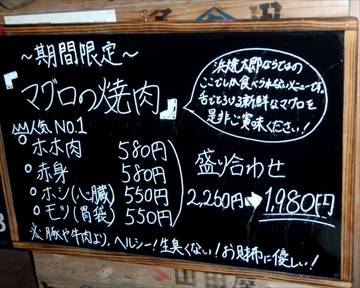 〜期間限定〜
『マグロの焼肉』
浜焼太郎ならではの
ここでしか食べられないメニューです。
舌でとろける新鮮なマグロを
是非ご賞味ください！
人気No.1
ホホ肉 580円
赤身 580円
ホシ(心臓) 550円
モリ(胃袋) 550円
盛り合わせ
2,260円→1,980円
※豚や牛肉より、ヘルシー！生臭くない！お財布に優しい！